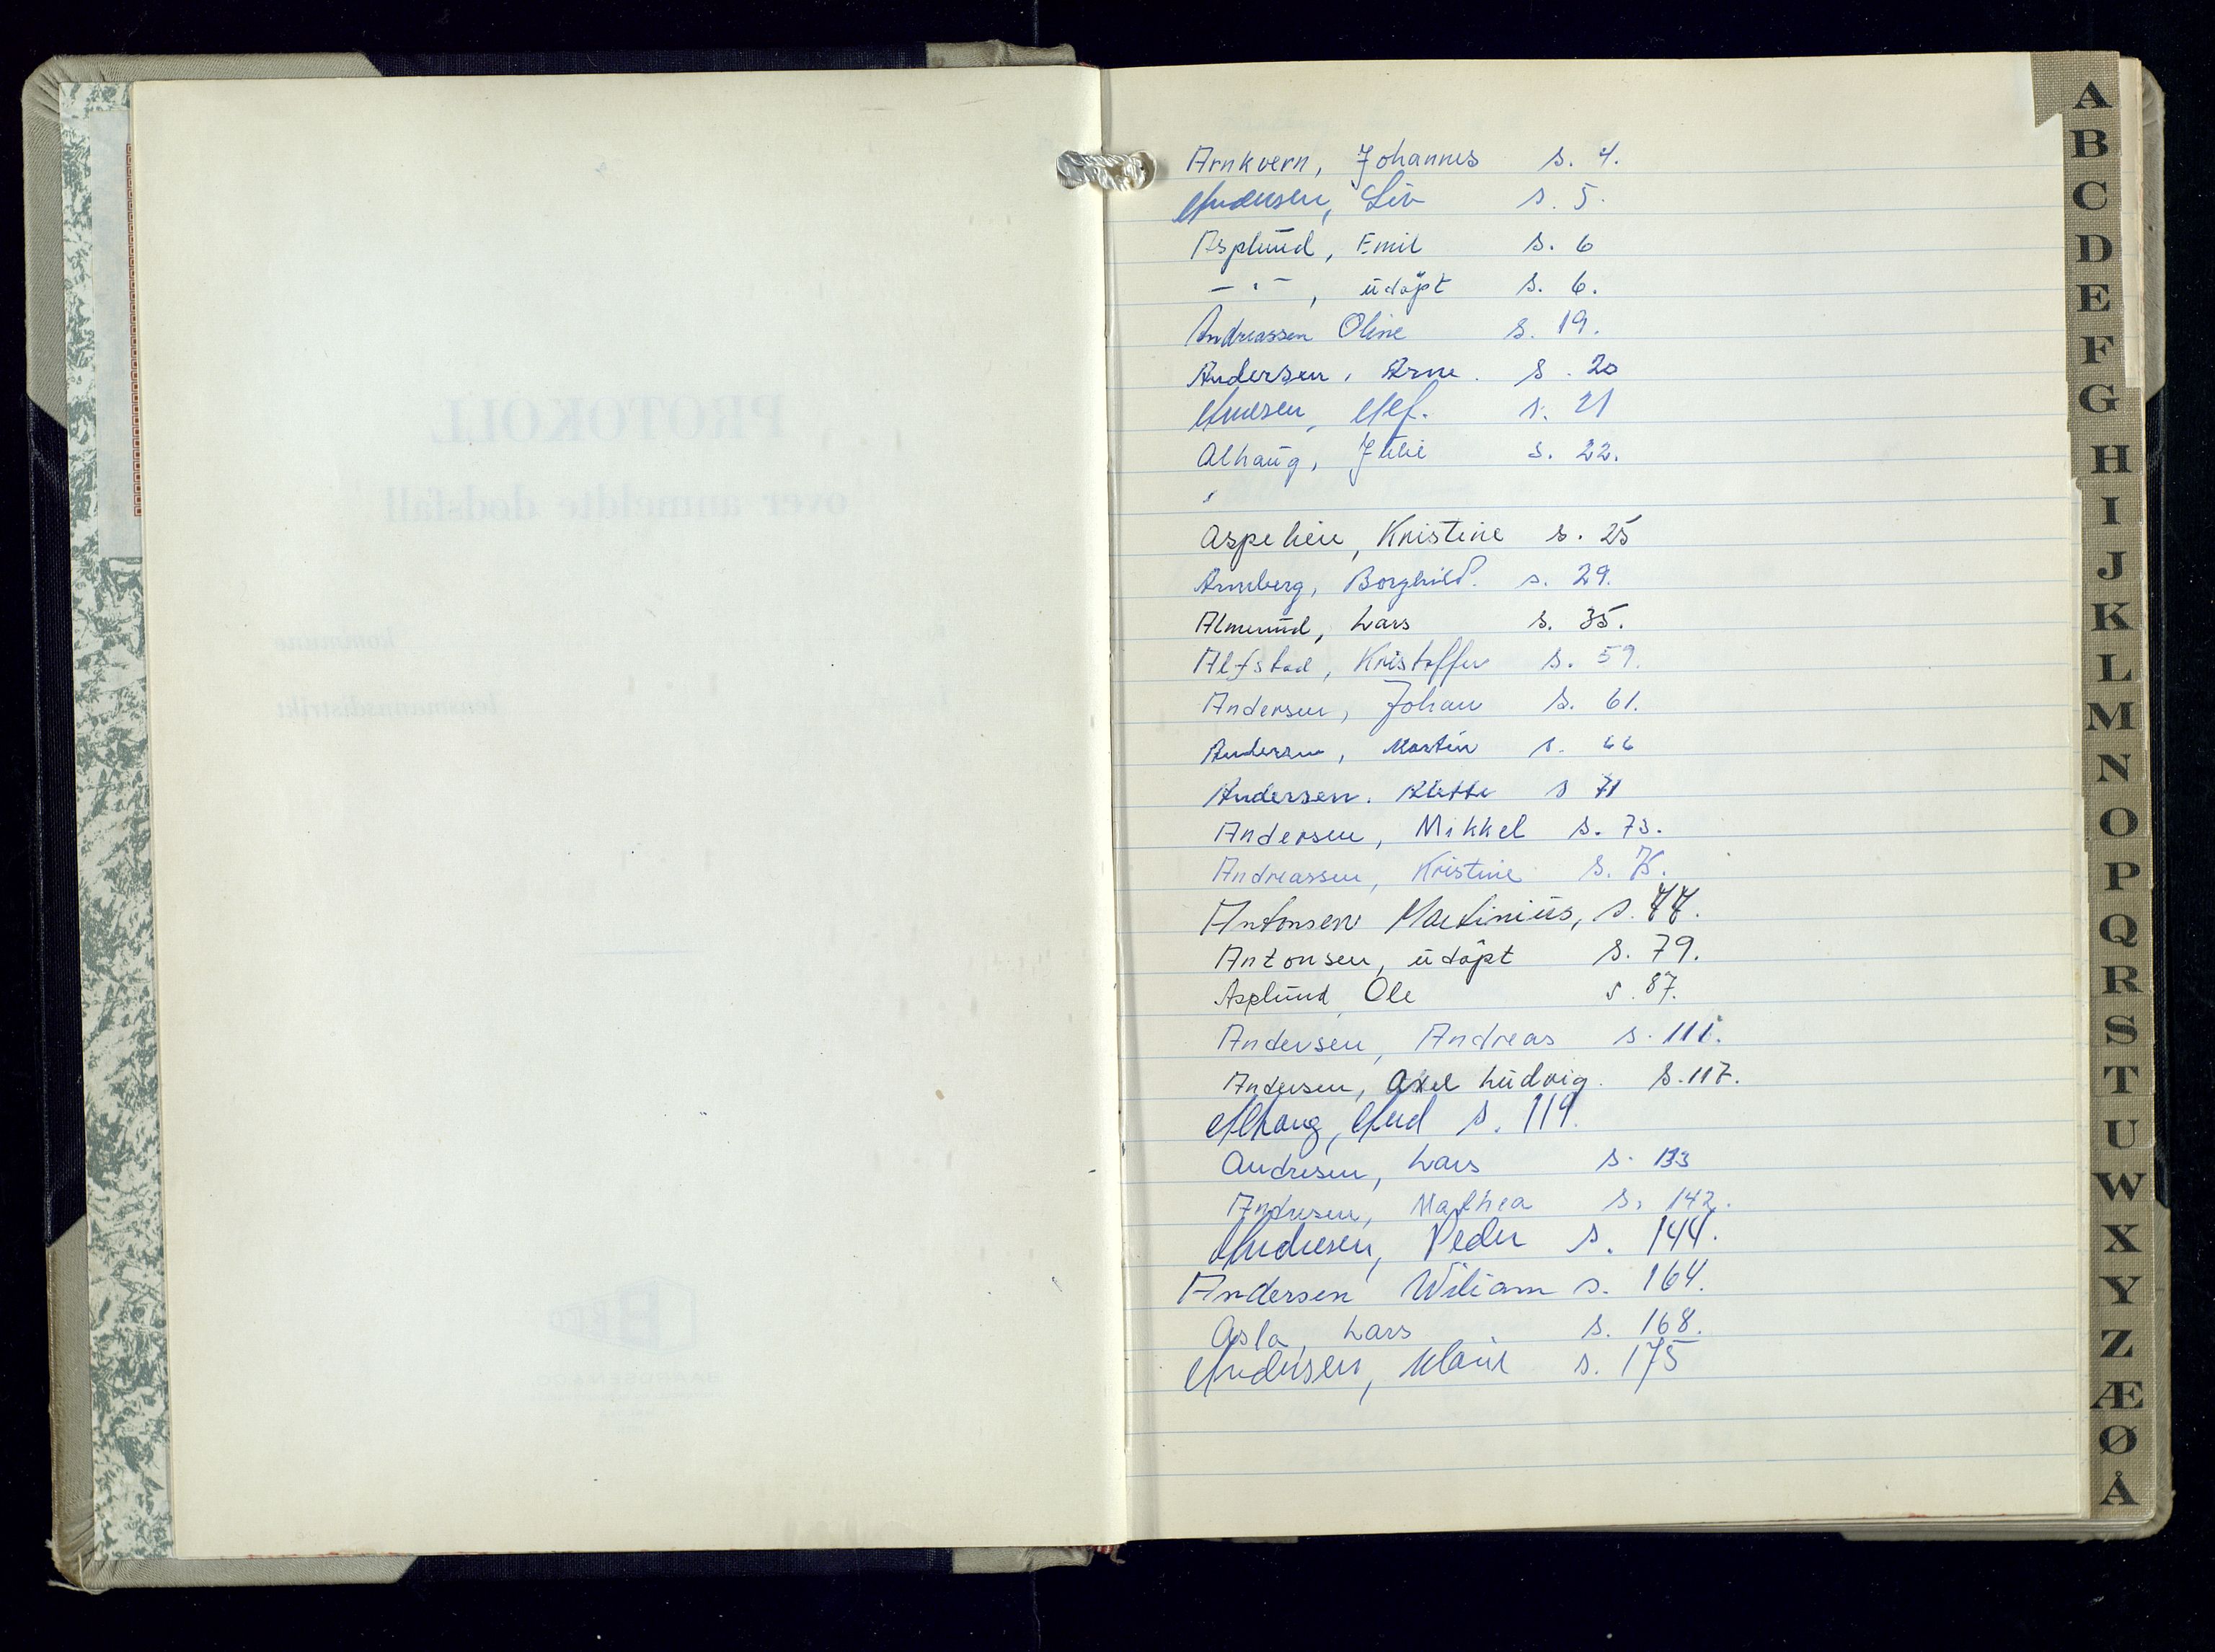 PROTOKOLL
over anmeldte dødsfall
kommune
lensmannsdistrikt
Arnkvern, Johannes s. 4.
Andersen, Liv s. 5.
Asplund, Emil s. 6
— " — , udøpt s. 6.
Andreassen Oline s. 19.
Andersen, Arne. s. 20
Alf. s. 21
Alhaug, Julie s. 22.
Aspelien, Kristine s. 25
Borghild. s. 29.
Almerud, Lars s. 35.
Alfstad, Kristoffer s. 59.
Andersen, Johan s. 61.
Andersen, Martin s. 66
Andersen. s 71
Andersen, Mikkel s. 73.
Andreassen, Kristine s. 75.
Antonsen Martinius, s. 77.
Antonsen, udøpt s. 79.
Asplund, Ole s. 87.
Andersen, Andreas s. 111.
Andersen, Axel Ludvig. s. 117.
Alhaug, Amd s. 119.
Andresen, Lars s. 133
Andresen, Mathea s. 142.
Andresen, Peder s. 144.
Andersen Wiliam s. 164.
Asla, Lars s. 168.
Andersen, s. 175
A
B
C
D
E
F
G
H
I
J
K
L
M
N
O
P
Q
R
S
T
U
W
X
Y
Z
Æ
Ø
Å